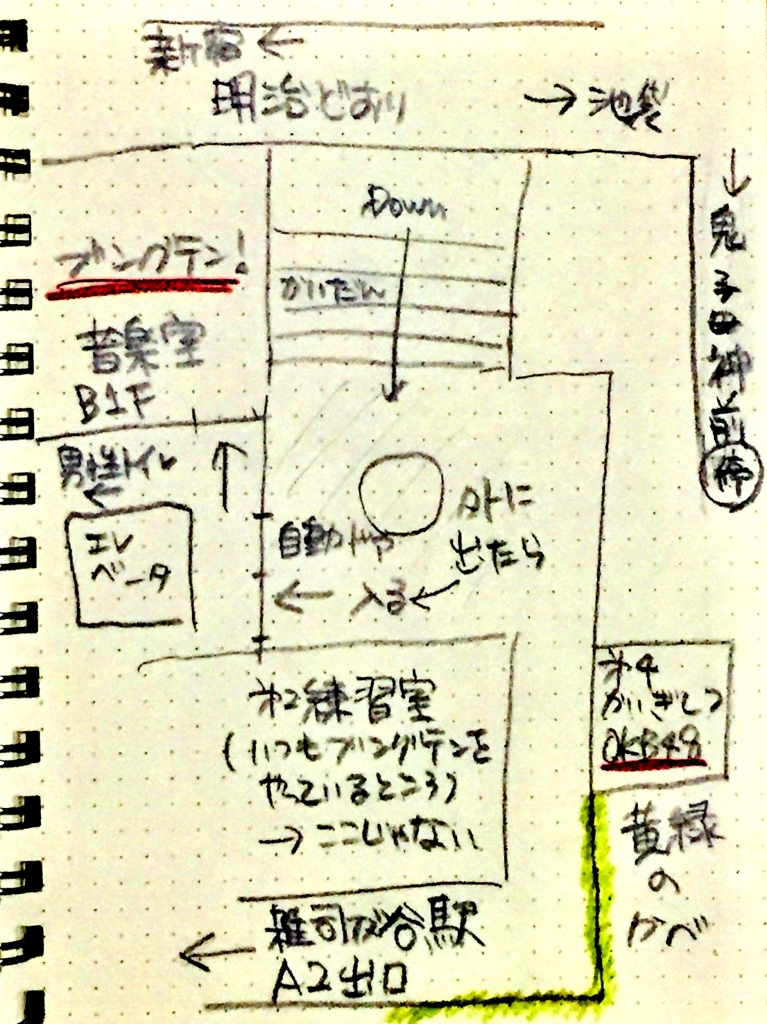 新宿 ←
明治どおり → 池袋
↓ 鬼子母神前 停
Down
かいだん
ブングテン!
音楽室
B1F
男性トイレ
←
↑
エレ
ベータ
外に
出たら
自動ドア
← 入る ←
第2練習室
(いつもブングテンを
やっているところ)
→ ここじゃない
第4
かいぎしつ
OKB48
黄緑
の
かべ
← 雑司が谷駅
A2出口